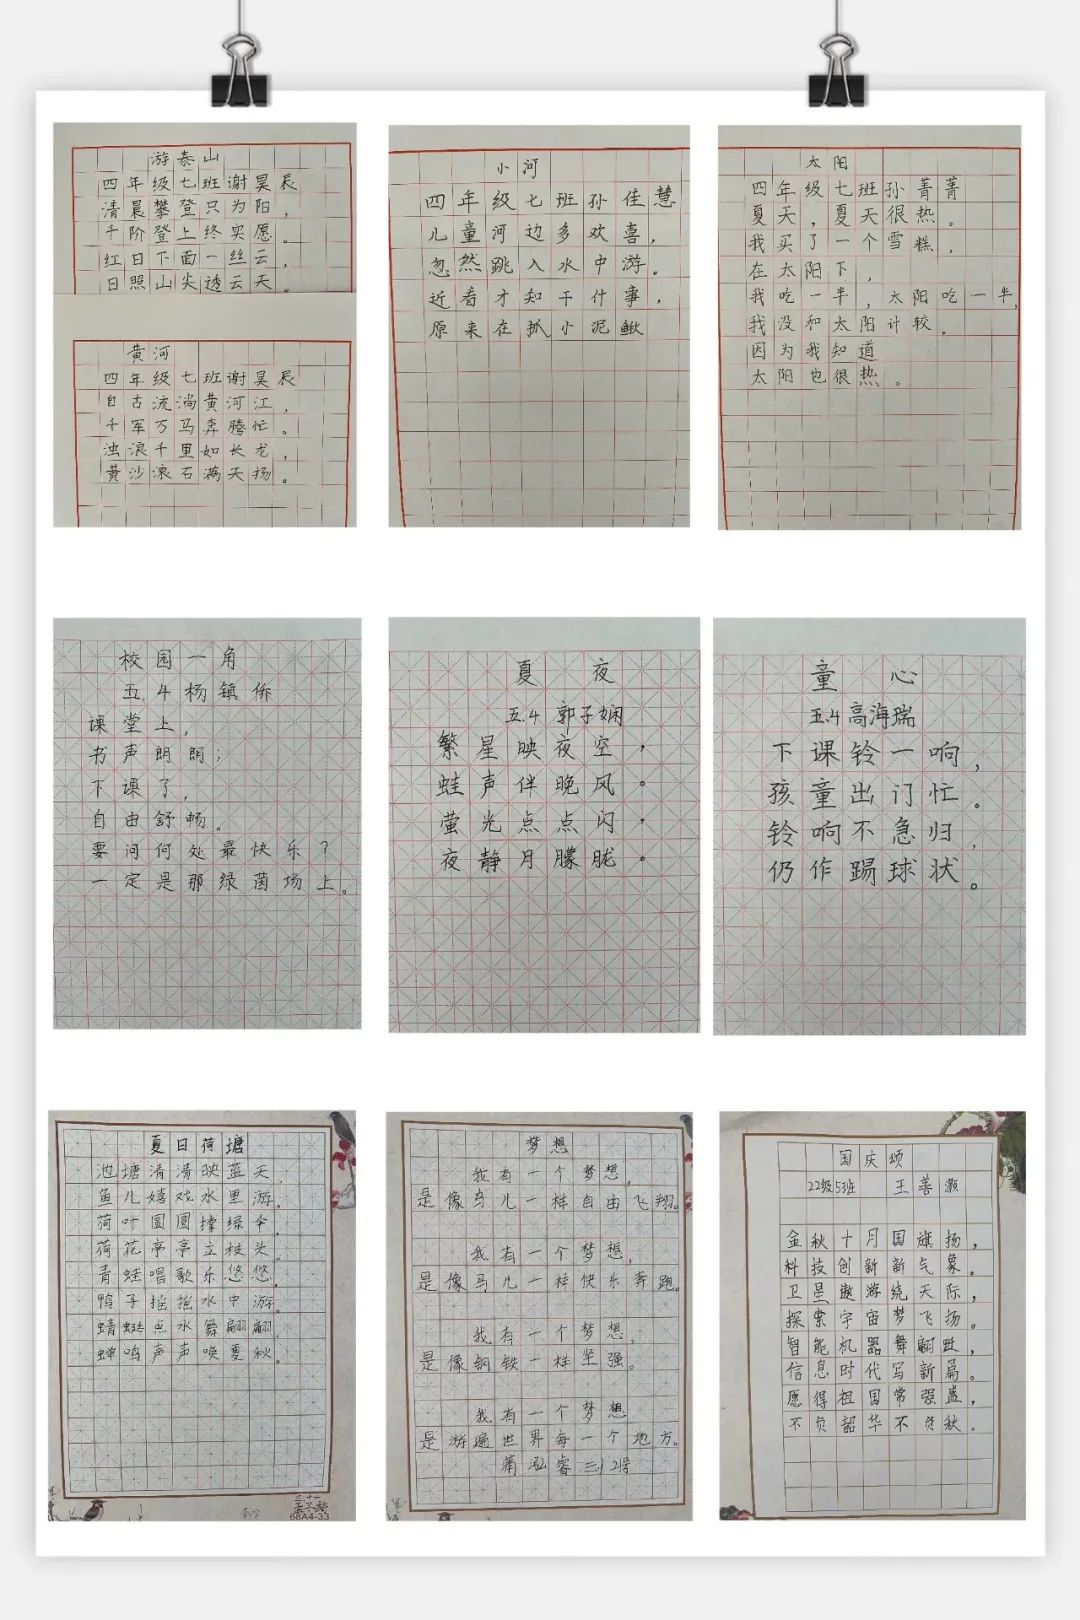 游泰山
四年级七班谢昊辰
清晨攀登只为阳，
千阶登上终实愿。
红日下面一丝云，
日照山尖透云天。
黄河
四年级七班谢昊辰
自古流淌黄河江，
千军万马奔腾忙。
浊浪千里如长龙，
黄沙滚石满天扬。
小河
四年级七班孙佳慧
儿童河边多欢喜，
忽然跳入水中游。
近看才知干什事，
原来在抓小泥鳅
太阳
四年级七班孙菁菁
夏天，夏天很热。
我买了一个雪糕，
在太阳下，
我吃一半，太阳吃一半，
我没和太阳计较。
因为我知道
太阳也很热。
校园一角
五.4 杨镇侨
课堂上，
书声朗朗，
下课了，
自由舒畅。
要问何处最快乐？
一定是那绿茵场上。
夏夜
五.4 郭子娴
繁星映夜空，
蛙声伴晚风。
萤光点点闪，
夜静月朦胧。
童心
五.4 高海瑞
下课铃一响，
孩童出门忙。
铃响不急归，
仍作踢球状。
夏日荷塘
池塘清清映蓝天，
鱼儿嬉戏水里游。
荷叶圆圆撑绿伞，
荷花亭亭立枝头。
青蛙唱歌乐悠悠，
鸭子摇摇水中游。
蜻蜓点水舞翩翩，
蝉鸣声声唤夏秋。
68A4-33
梦想
我有一个梦想，
是像鸟儿一样自由飞翔。
我有一个梦想，
是像马儿一样快乐奔跑。
我有一个梦想，
是像钢铁一样坚强。
我有一个梦想
是游遍世界每一个地方。
萧泓睿 三.1 21号
国庆颂
22级5班 王善灏
金秋十月国旗扬，
科技创新新气象。
卫星遨游绕天际，
探索宇宙梦飞扬。
智能机器舞翩跹，
信息时代写新篇。
愿得祖国常强盛，
不负韶华不负秋。